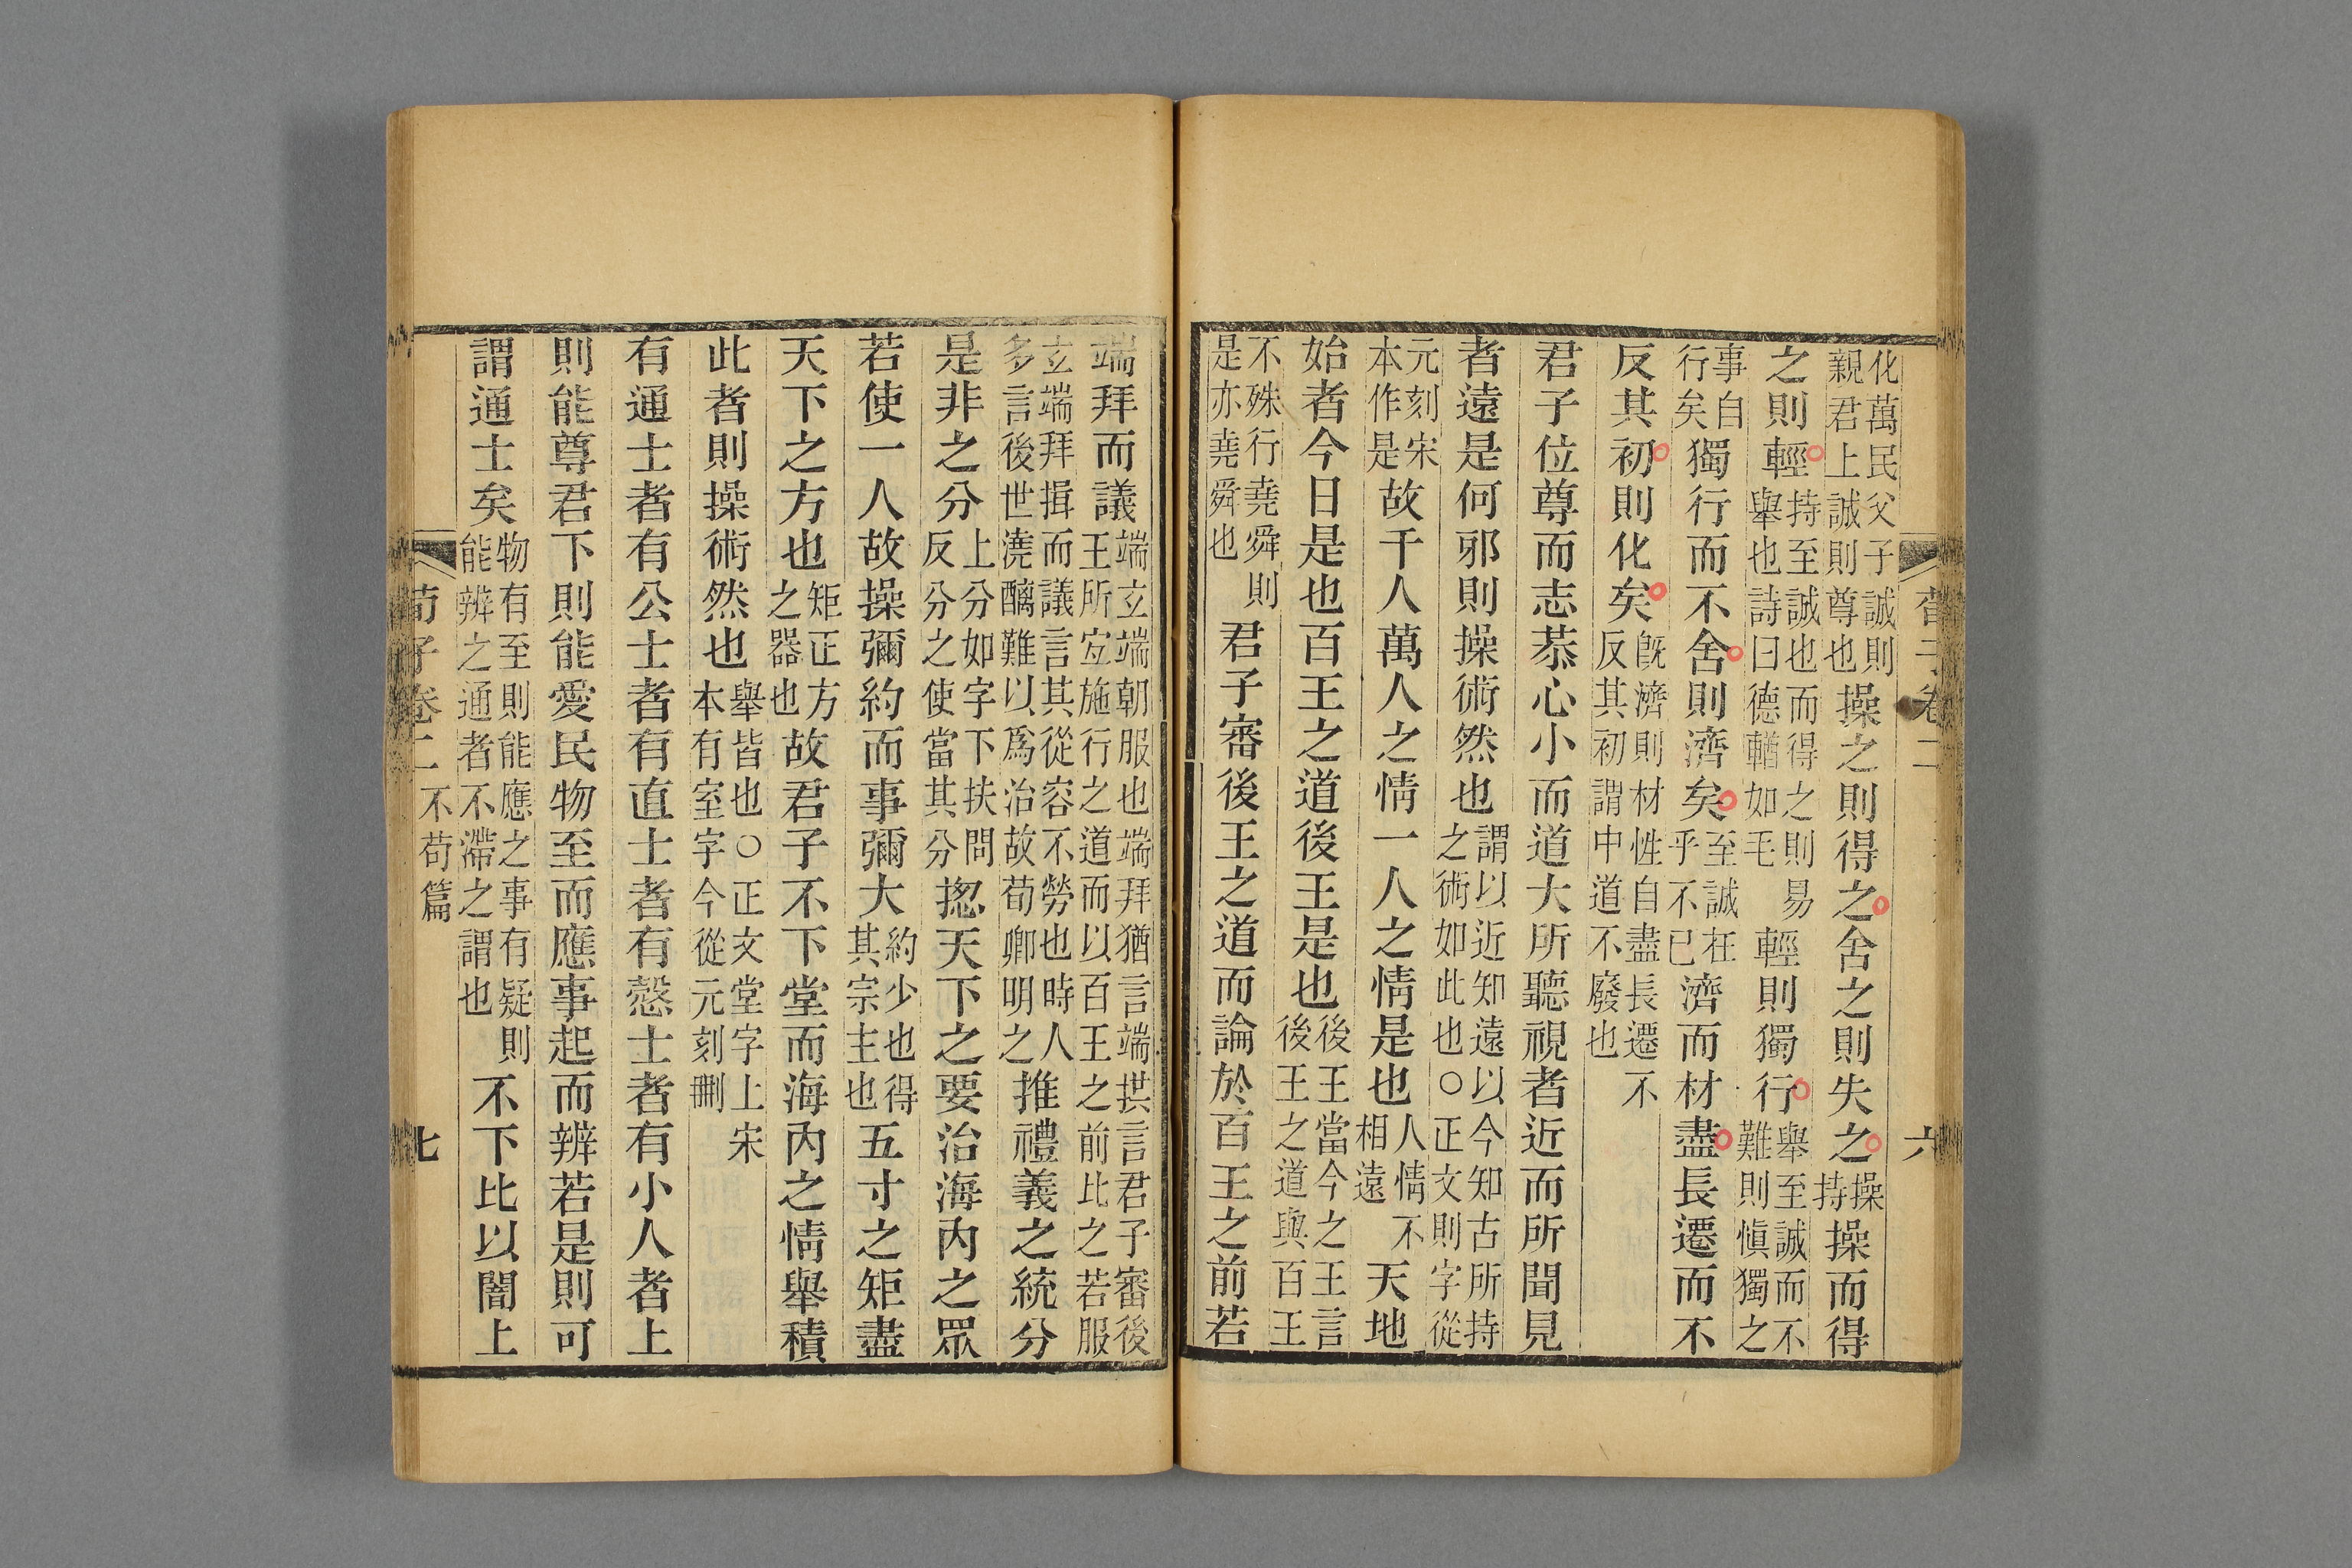 化萬民父子誠則
親君上誠則尊也
操之則得之舍之則失之
操
持
操而得
之則輕
持至誠也而得之則易
舉也詩曰德輶如毛
輕則獨行
舉至誠而不
難則愼獨之
事自
行矣
獨行而不舍則濟矣
至誠在
乎不已
濟而材盡長遷而不
反其初則化矣
既濟則材性自盡長遷不
反其初謂中道不廢也
君子位尊而志恭心小而道大所聽視者近而所聞見
者遠是何邪則操術然也
謂以近知遠以今知古所持
之術如此也○正文則字從
元刻宋
本作是
故千人萬人之情一人之情是也
人情不
相遠
天地
始者今日是也百王之道後王是也
後王當今之王言
後王之道與百王
不殊行堯舜則
是亦堯舜也
君子審後王之道而論於百王之前若
荀子卷二
六
端拜而議
端立端朝服也端拜猶言端拱言君子審後
王所宜施行之道而以百王之前比之若服
玄端拜揖而議言其從容不勞也時人
多言後世澆醨難以爲治故荀卿明之
推禮義之統分
是非之分
上分如字下扶問
反分之使當其分
揔天下之要治海內之眾
若使一人故操彌約而事彌大
約少也得
其宗主也
五寸之矩盡
天下之方也
矩正方
之器也
故君子不下堂而海內之情舉積
此者則操術然也
舉皆也○正文堂字上宋
本有室字今從元刻刪
有通士者有公士者有直士者有愨士者有小人者上
則能尊君下則能愛民物至而應事起而辨若是則可
謂通士矣
物有至則能應之事有疑則
能辨之通者不滯之謂也
不下比以闇上
荀子卷二
不苟篇
七